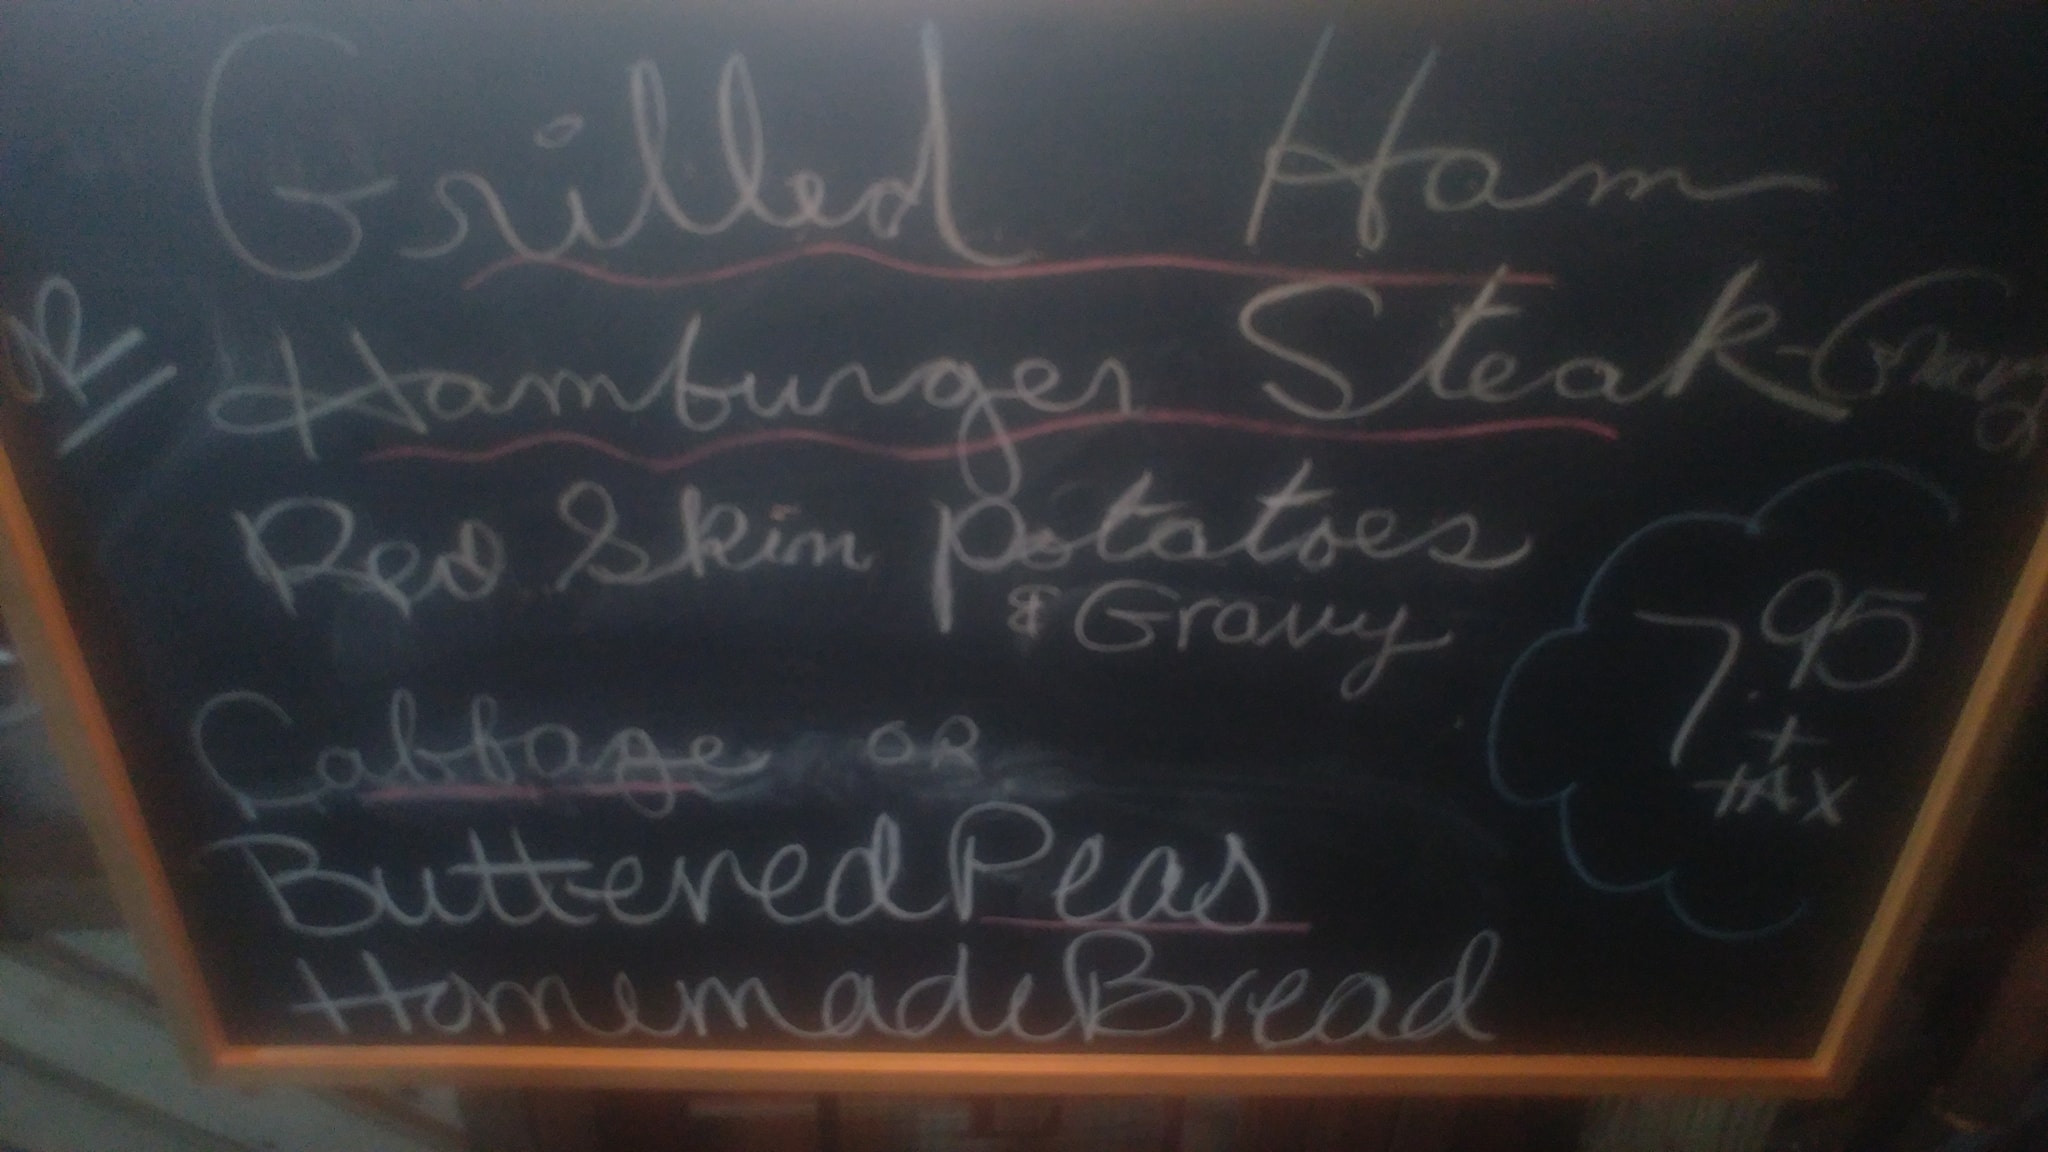 Grilled Ham
OR Hamburger Steak - Gravy
Red Skin Potatoes
& Gravy
Cabbage OR
Buttered Peas
Homemade Bread
7.95
+
tAx